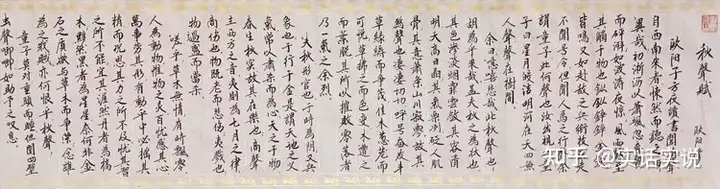 秋聲賦
歐陽
歐陽子方夜讀書聞有聲
自西南來者悚然而聽之曰
異哉初淅瀝以蕭颯忽奔騰
而砰湃如波濤夜驚風雨驟至
其觸于物也鏦鏦錚錚金鐵
皆鳴又如赴敵之兵銜枚疾走
不聞號令但聞人馬之行聲余
謂童子此何聲也汝出視之童
子曰星月皎潔明河在天四無
人聲聲在樹間
余曰噫嘻悲哉此秋聲也
胡為乎來哉蓋夫秋之為狀也
其色慘淡煙霏雲斂其容清
明天高日晶其氣慄冽砭人肌
骨其意蕭條山川寂寥故其
為聲也淒淒切切呼號奮發豐
草綠縟而爭茂佳木蔥蘢而
可悅草拂之而色變木遭之
而葉脫其所以摧敗零落者
乃一氣之餘烈
夫秋刑官也于時為陰又兵
象也于行于金是謂天地之義
氣常以肅殺而為心天之于物
春生秋實故其在樂也商聲
主西方之音夷則為七月之律
商傷也物既老而悲傷夷戮也
物過盛而當殺
嗟乎草木無情有時飄零
人為動物惟物之靈百憂感其心
萬事勞其形有動乎中必搖其
精而況思其力之所不及憂其智
之所不能宜其渥然丹者為槁
木黟然黑者為星星奈何非金
石之質欲與草木而爭榮念誰
為之戕賊亦何恨乎秋聲
童子莫對垂頭而睡但聞四壁
虫聲唧唧如助予之嘆息
知乎 @实话实说